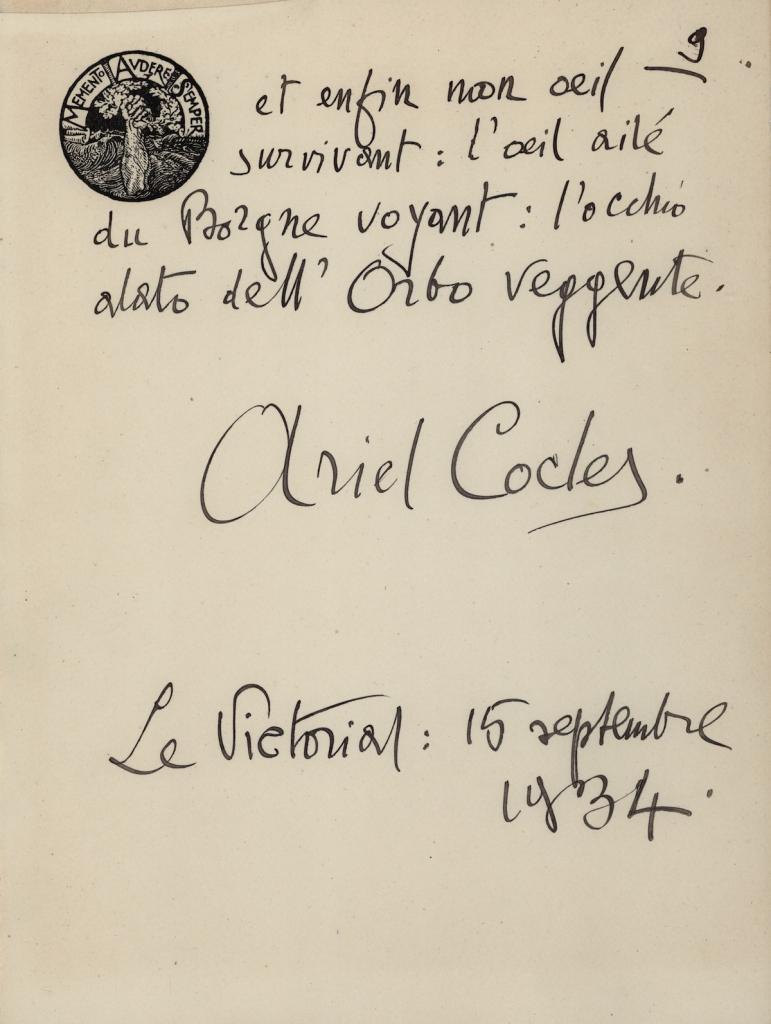 9
MEMENTO AVDERE SEMPER
et enfin mon oeil
survivant : l'œil ailé
du Borgne voyant : l'occhio
alato dell' Orbo veggente.
Ariel Cocles.
Le Victorial : 15 septembre
1934.